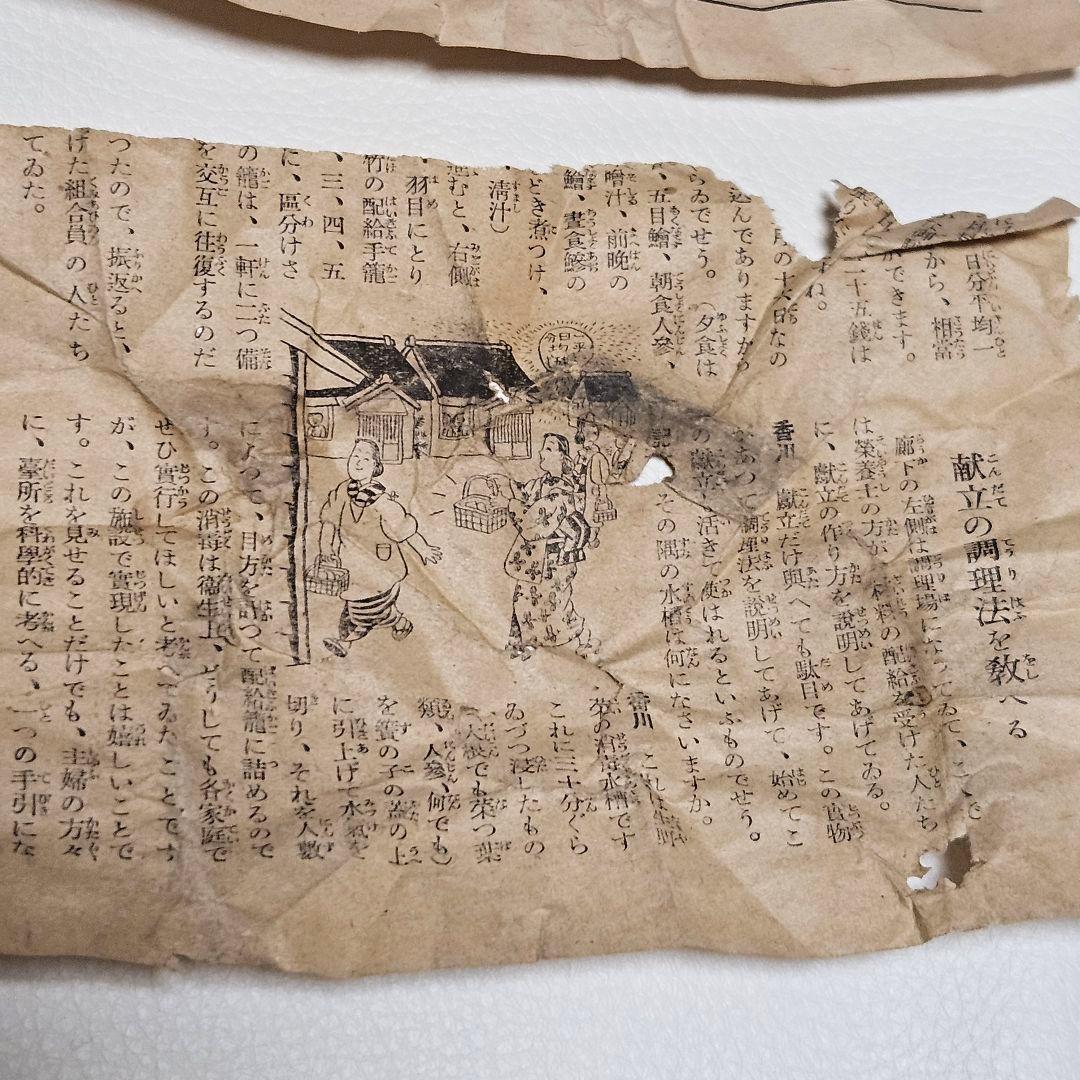 日分平均一
から、相當
ができます。
二十五錢は
すね。
月の十六日なの
込んでありますから
らゐでせう。(夕食は
、五目鱠、朝食人參、
噌汁、前晩の
鱠、晝食鰺の
どき煮つけ、
、淸汁)
進むと、右側
、羽目にとり
竹の配給手籠
、三、四、五
に、區分けさ
の籠は、一軒に二つ備
を交互に往復するのだ
つたので、振返ると、
けた組合員の人たち
てゐた。
献立の調理法を敎へる
廊下の左側は調理場になつてゐて、こゝで
は榮養士の方が、材料の配給を受けた人たち
に、獻立の作り方を說明してあげてゐる。
香川 獻立だけ與へても駄目です。この實物
があつて調理法を說明してあげて、始めてこ
の獻立も活きて使はれるといふものでせう。
記 その隅の水槽は何になさいますか。
香川 これは生野
菜の消毒水槽です
これに三十分ぐら
ゐづつ浸したもの
(大根でも菜つ葉
類、人參、何でも)
を簀の子の蓋の上
に引上げて水氣を
切り、それを人數
によつて、目方を計つて配給籠に詰めるので
す。この消毒は衞生上、どうしても各家庭で
ぜひ實行してほしいと考へてゐたことです
が、この施設で實現したことは嬉しいことで
す。これを見せることだけでも、主婦の方々
に、臺所を科學的に考へる、一つの手引にな